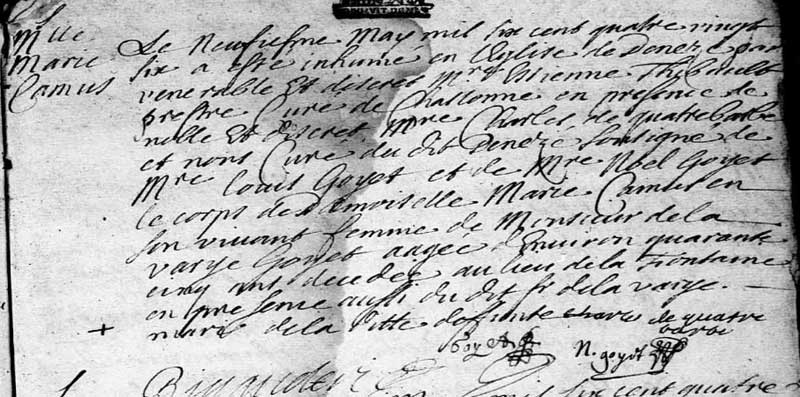 Mlle
Marie
Camus
Le Neufiesme May mil six cent quatre vingt
six a esté inhumé en l'Eglise de Denezé par
venerable Et discret Mre Estienne Thibault
prestre Curé de Challonne en presence de
noble Et discret Mre Charles de quatrebarbe
et nous Curé du dit Denezé soubsigné de
Mre Louis Goyet et de Mre Noel Goyet
le corps de damoiselle Marie Camus en
son vivant femme de Monsieur de la
varye Goyet angee d'Environ quarante
cinq ans decedee au lieu de la Fontaine
en presence aussi du dit sr de la varye
mary de la ditte deffunte charles de quatre
barbe
Goyet
N. goyet
mil six cent quatre